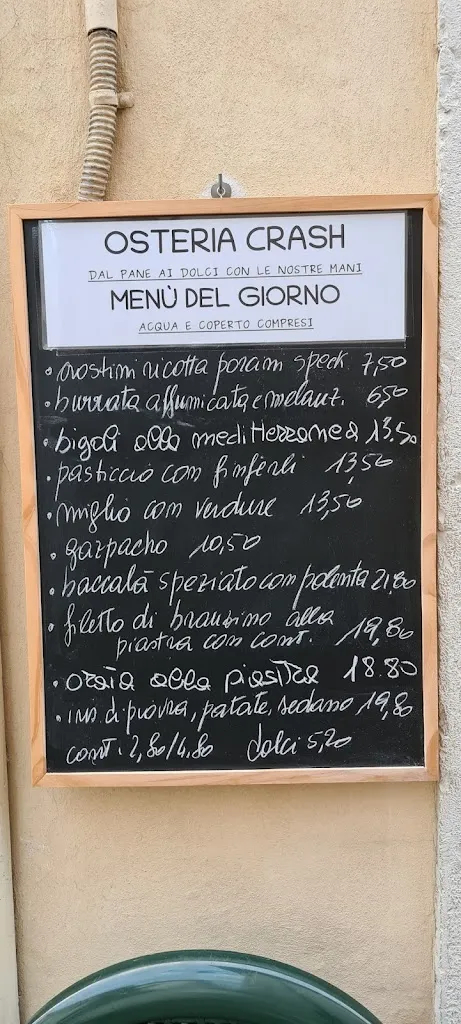 OSTERIA CRASH
DAL PANE AI DOLCI CON LE NOSTRE MANI
MENÙ DEL GIORNO
ACQUA E COPERTO COMPRESI
• crostini ricotta porcini speck 7,50
• burrata affumicata e melanz. 6,50
• bigoli alla mediterranea 13.50
• pasticcio con finferli 13,50
• miglio con verdure 13,50
• gazpacho 10,50
• baccalà speziato con polenta 21,80
• filetto di branzino alla
piastra con cont. 19,80
• orata alla piastra 18.80
• ins. di piovra, patate, sedano 19,80
cont. 2,80/4.80 dolci 5,20